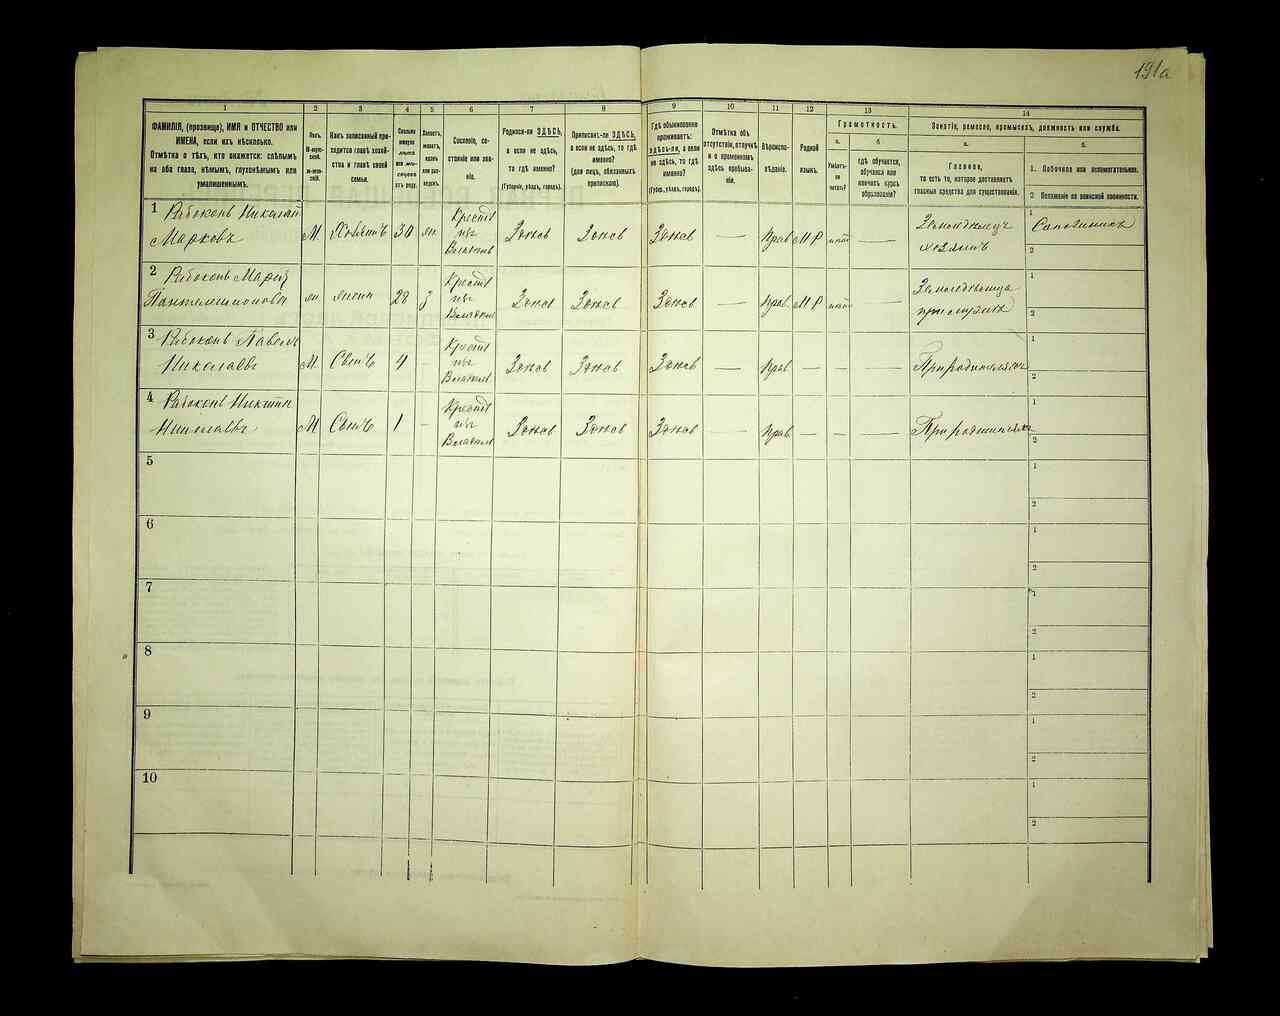 191а
1 2 3 4 5 6 7 8 9 10 11 12 13 14
ФАМИЛІЯ, (прозвище), ИМЯ и ОТЧЕСТВО или
ИМЕНА, если ихъ нѣсколько.
Отмѣтка о тѣхъ, кто окажется: слѣпымъ
на оба глаза, нѣмымъ, глухонѣмымъ или
умалишеннымъ.
Полъ.
М-мужской.
Ж-женскій.
Какъ записанный при-
ходится главѣ хозяй-
ства и главѣ своей
семьи.
Сколько
минуло
лѣтъ
или мѣ-
сяцевъ
отъ роду.
Холостъ,
женатъ,
вдовъ
или раз-
веденъ.
Сословіе, со-
стояніе или зва-
ніе.
Родился-ли ЗДѢСЬ,
а если не здѣсь,
то гдѣ именно?
(Губернія, уѣздъ, городъ).
Приписанъ-ли ЗДѢСЬ,
а если не здѣсь, то гдѣ
именно?
(для лицъ, обязанныхъ
припискою).
Гдѣ обыкновенно
проживаетъ:
ЗДѢСЬ-ли, а если
не здѣсь, то гдѣ
именно?
(Губерн., уѣздъ, городъ).
Отмѣтка объ
отсутствіи, отлучкѣ
и о временномъ
здѣсь пребыва-
ніи.
Вѣроиспо-
вѣданіе.
Родной
языкъ.
Грамотность.
а.
Умѣетъ-
ли
читать?
б.
гдѣ обучается,
обучался или
кончилъ курсъ
образованія?
Занятіе, ремесло, промыселъ, должность или служба.
а.
Главное,
то есть то, которое доставляетъ
главныя средства для существованія.
б.
1. Побочное или вспомогательное.
2. Положеніе по воинской повинности.
1 Рябоконь Николай
Марковъ М. Хозяинъ 30 жн. Крестя
ны
Владѣльч Здѣсь Здѣсь Здѣсь — Прав МР нѣтъ — Земледѣлецъ
хозяинъ 1 Сапожникъ
2
2 Рябоконь Марія
Пантелеимонова ж. жена 28 з Крестя
ны
Владѣльч Здѣсь Здѣсь Здѣсь — Прав МР нѣтъ Земледѣлица
при мужѣ 1
2
3 Рябоконь Павелъ
Николаевъ М. Сынъ 4 - Крестя
ны
Владѣльч Здѣсь Здѣсь Здѣсь — Прав — — — При родителяхъ 1
2
4 Рябоконь Никита
Николаевъ М Сынъ 1 - Крестя
ны
Владѣльч Здѣсь Здѣсь Здѣсь — Прав. — — — При родителяхъ 1
2
5 1
2
6 1
2
7 1
2
8 1
2
9 1
2
10 1
2